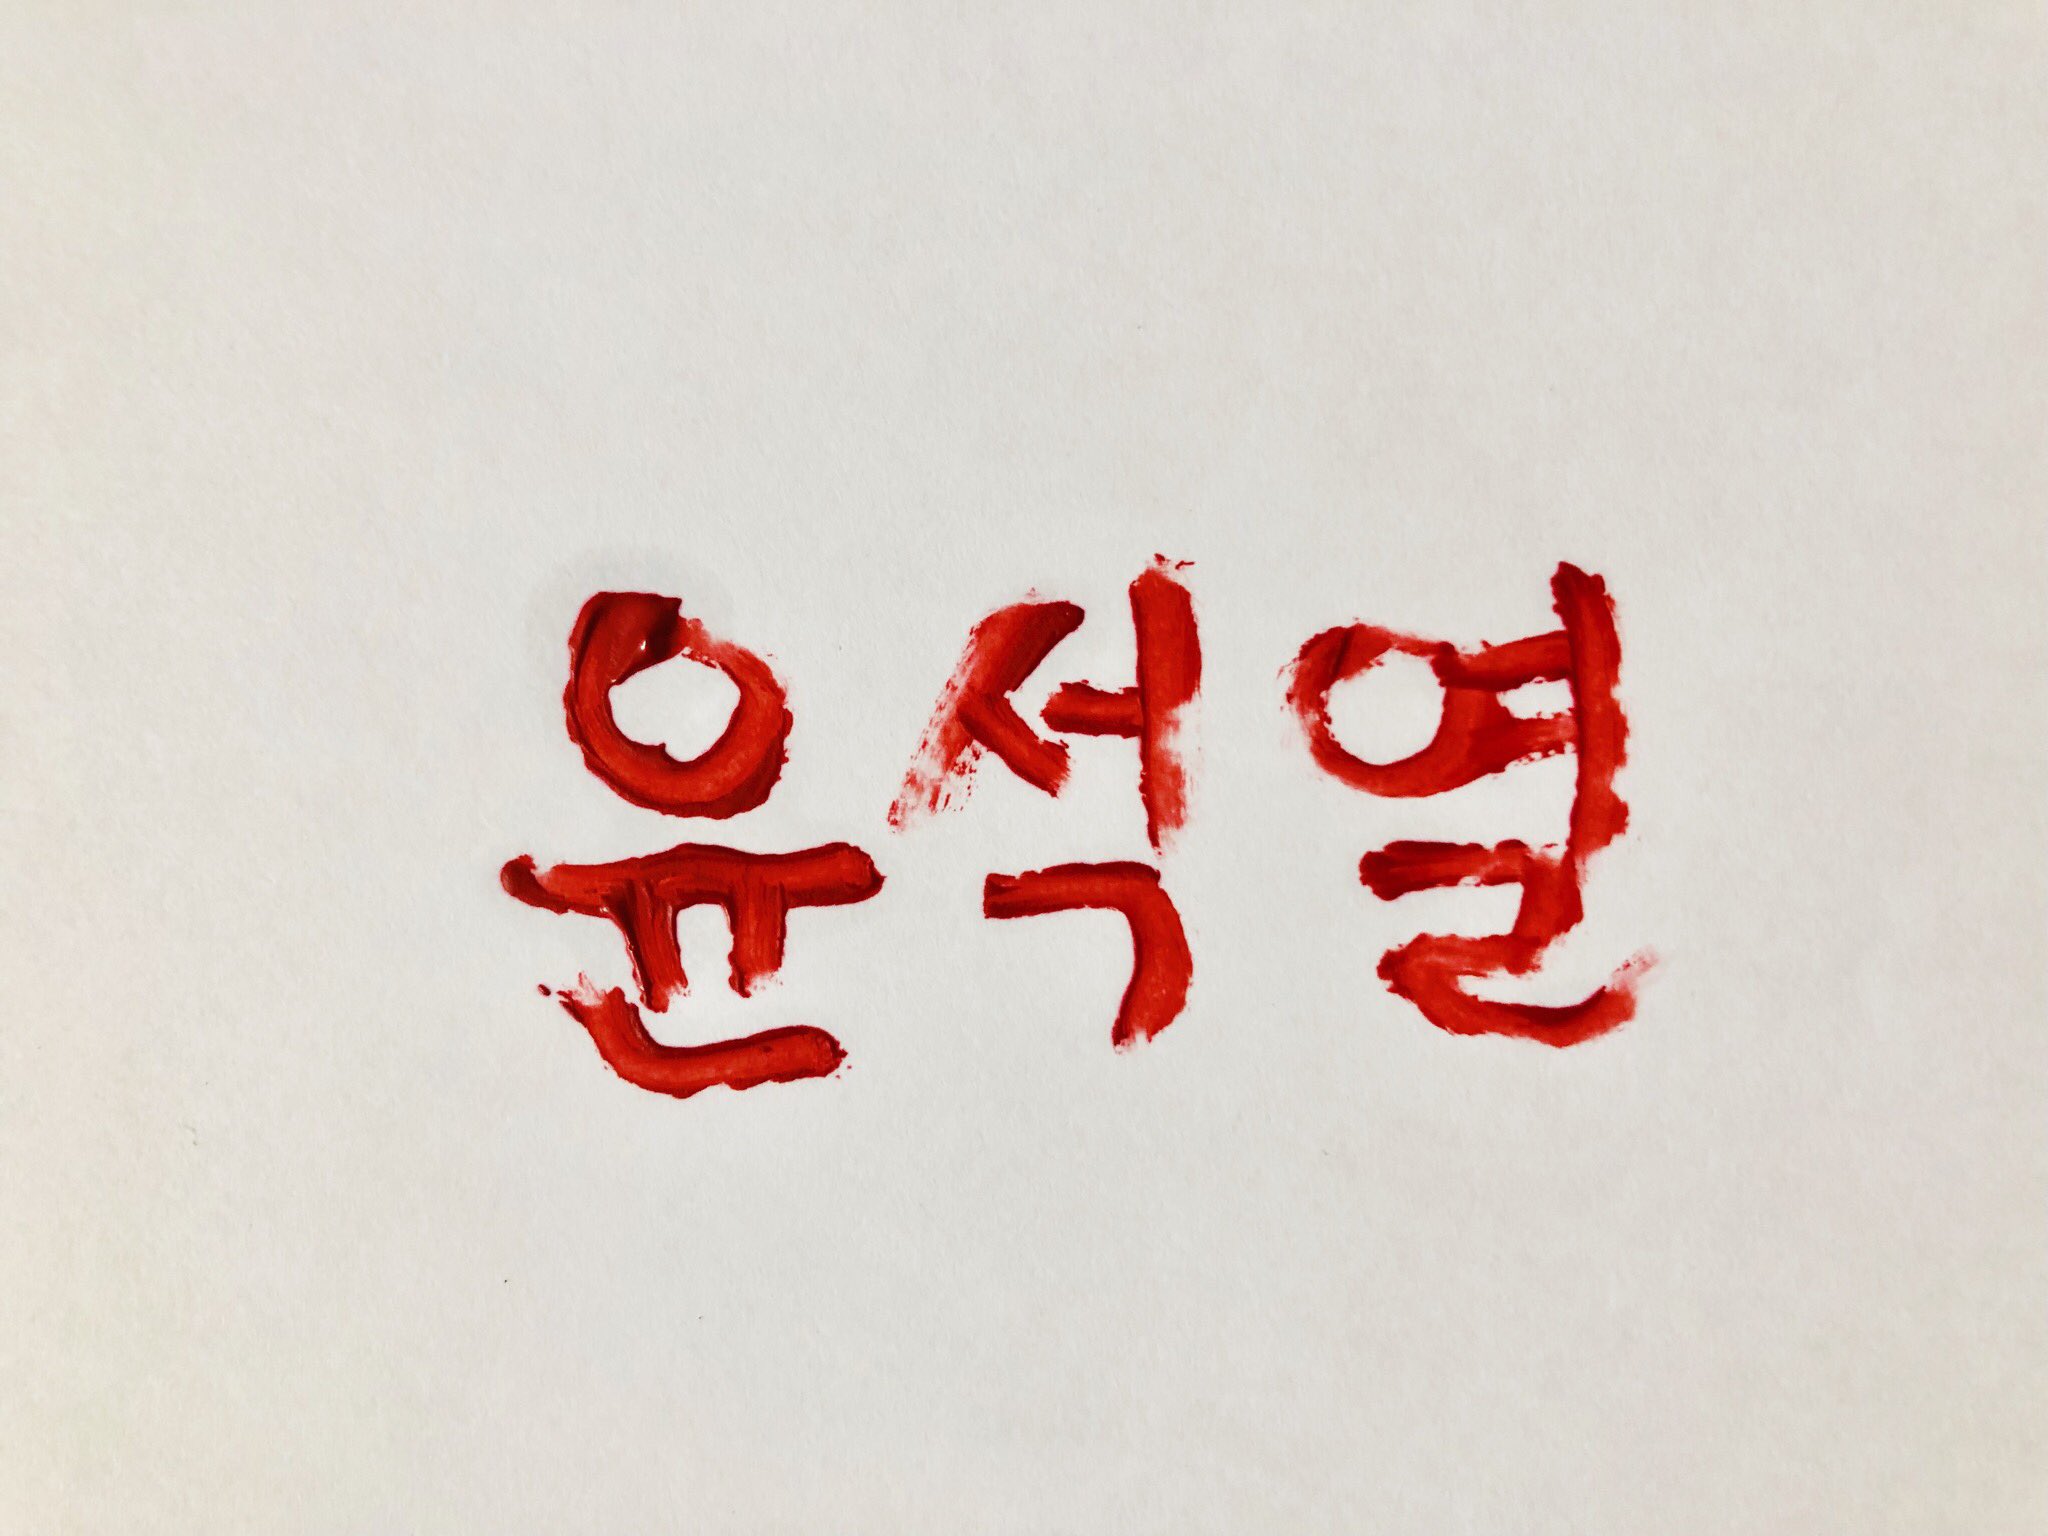 윤석열